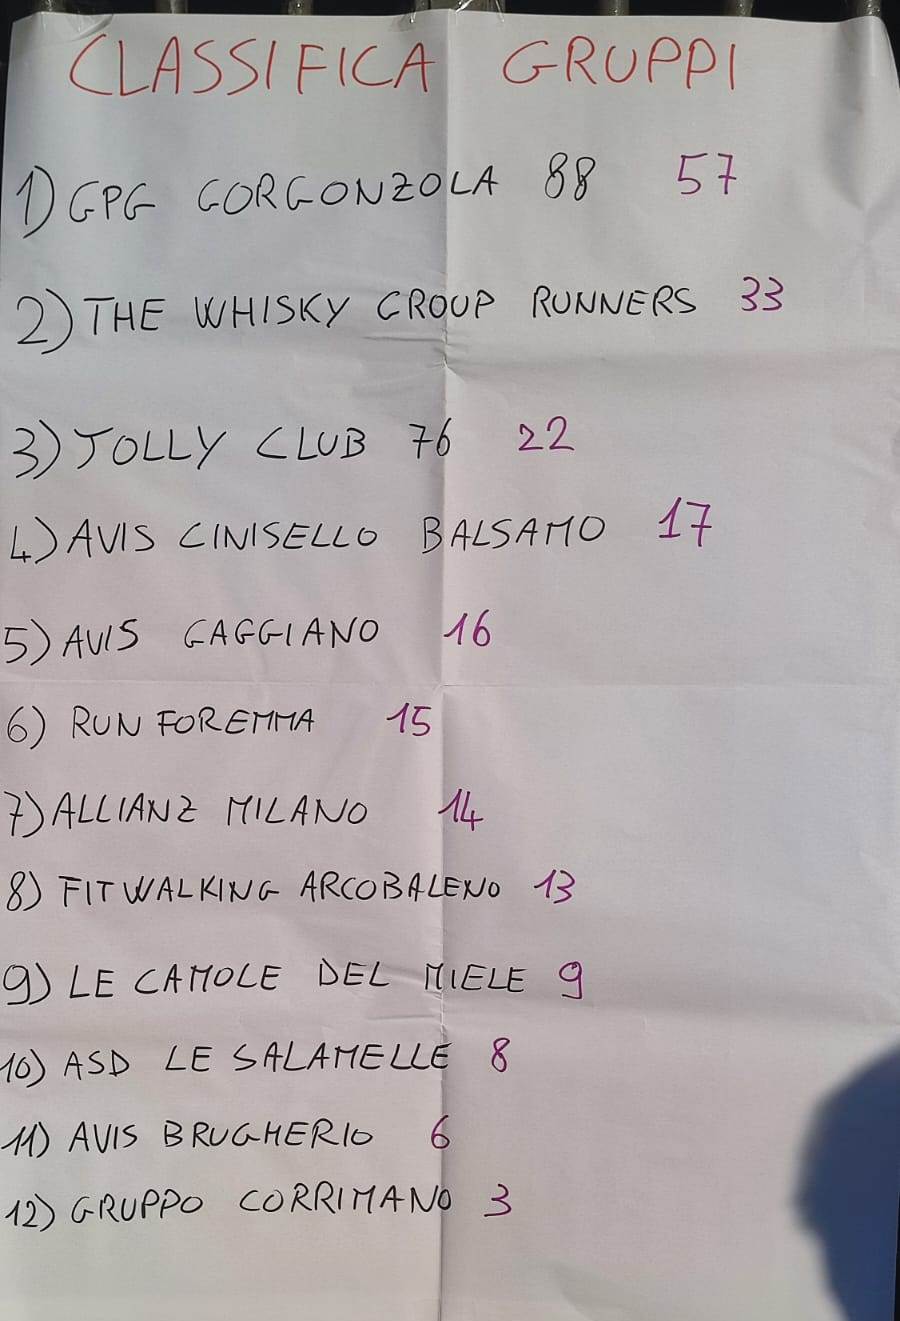 CLASSIFICA GRUPPI
1) GPG GORGONZOLA 88 57
2) THE WHISKY GROUP RUNNERS 33
3) JOLLY CLUB 76 22
4) AVIS CINISELLO BALSAMO 17
5) AVIS GAGGIANO 16
6) RUN FOREMMA 15
7) ALLIANZ MILANO 14
8) FITWALKING ARCOBALENO 13
9) LE CAMOLE DEL MIELE 9
10) ASD LE SALAMELLE 8
11) AVIS BRUGHERIO 6
12) GRUPPO CORRIMANO 3